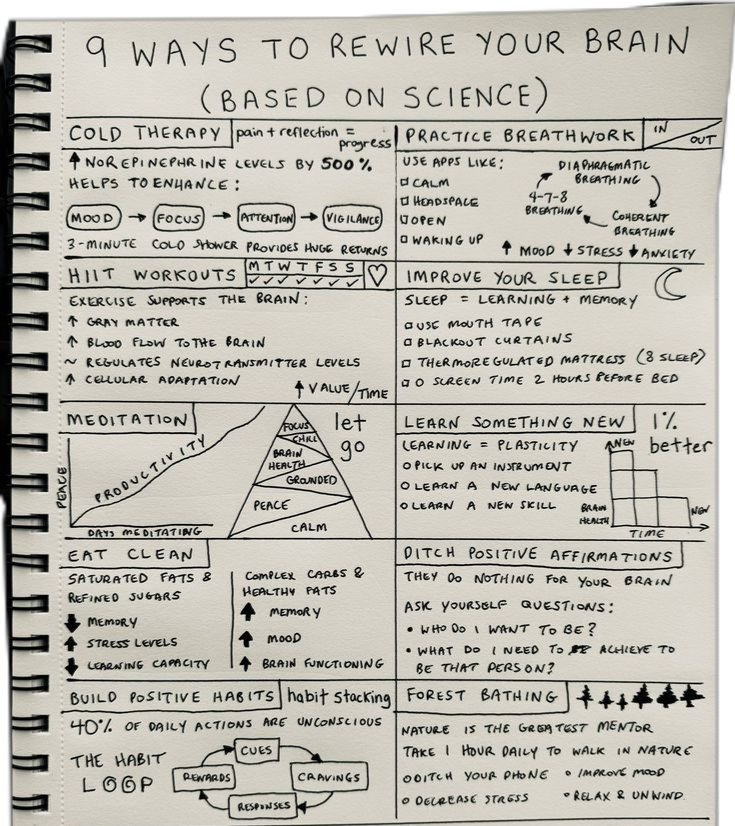 9 WAYS TO REWIRE YOUR BRAIN
(BASED ON SCIENCE)
COLD THERAPY
pain + reflection =
progress
↑ NOREPINEPHRINE LEVELS BY 500%
HELPS TO ENHANCE:
MOOD → FOCUS → ATTENTION → VIGILANCE
3-MINUTE COLD SHOWER PROVIDES HUGE RETURNS
PRACTICE BREATHWORK
IN
OUT
USE APPS LIKE:
CALM
HEADSPACE
OPEN
WAKING UP
DIAPHRAGMATIC
BREATHING
4-7-8
BREATHING
COHERENT
BREATHING
↑ MOOD ↓ STRESS ↓ ANXIETY
HIIT WORKOUTS
M T W T F S S
✓ ✓ ✓ ✓ ✓ ✓ ✓
EXERCISE SUPPORTS THE BRAIN:
↑ GRAY MATTER
↑ BLOOD FLOW TO THE BRAIN
~ REGULATES NEUROTRANSMITTER LEVELS
↑ CELLULAR ADAPTATION
↑ VALUE/TIME
IMPROVE YOUR SLEEP
SLEEP = LEARNING + MEMORY
USE MOUTH TAPE
BLACKOUT CURTAINS
THERMOREGULATED MATTRESS (8 SLEEP)
0 SCREEN TIME 2 HOURS BEFORE BED
MEDITATION
PEACE
PRODUCTIVITY
DAYS MEDITATING
let
go
FOCUS
CHILL
BRAIN
HEALTH
GROUNDED
PEACE
CALM
LEARN SOMETHING NEW
1%
better
LEARNING = PLASTICITY
PICK UP AN INSTRUMENT
LEARN A NEW LANGUAGE
LEARN A NEW SKILL
NEW
BRAIN
HEALTH
NEW
TIME
EAT CLEAN
SATURATED FATS &
REFINED SUGARS
↓ MEMORY
↑ STRESS LEVELS
↓ LEARNING CAPACITY
COMPLEX CARBS &
HEALTHY FATS
↑ MEMORY
↑ MOOD
↑ BRAIN FUNCTIONING
DITCH POSITIVE AFFIRMATIONS
THEY DO NOTHING FOR YOUR BRAIN
ASK YOURSELF QUESTIONS:
• WHO DO I WANT TO BE?
• WHAT DO I NEED TO ACHIEVE TO
BE THAT PERSON?
BUILD POSITIVE HABITS
habit stacking
40% OF DAILY ACTIONS ARE UNCONSCIOUS
THE HABIT
LOOP
CUES
CRAVINGS
RESPONSES
REWARDS
FOREST BATHING
NATURE IS THE GREATEST MENTOR
TAKE 1 HOUR DAILY TO WALK IN NATURE
DITCH YOUR PHONE
IMPROVE MOOD
DECREASE STRESS
RELAX & UNWIND